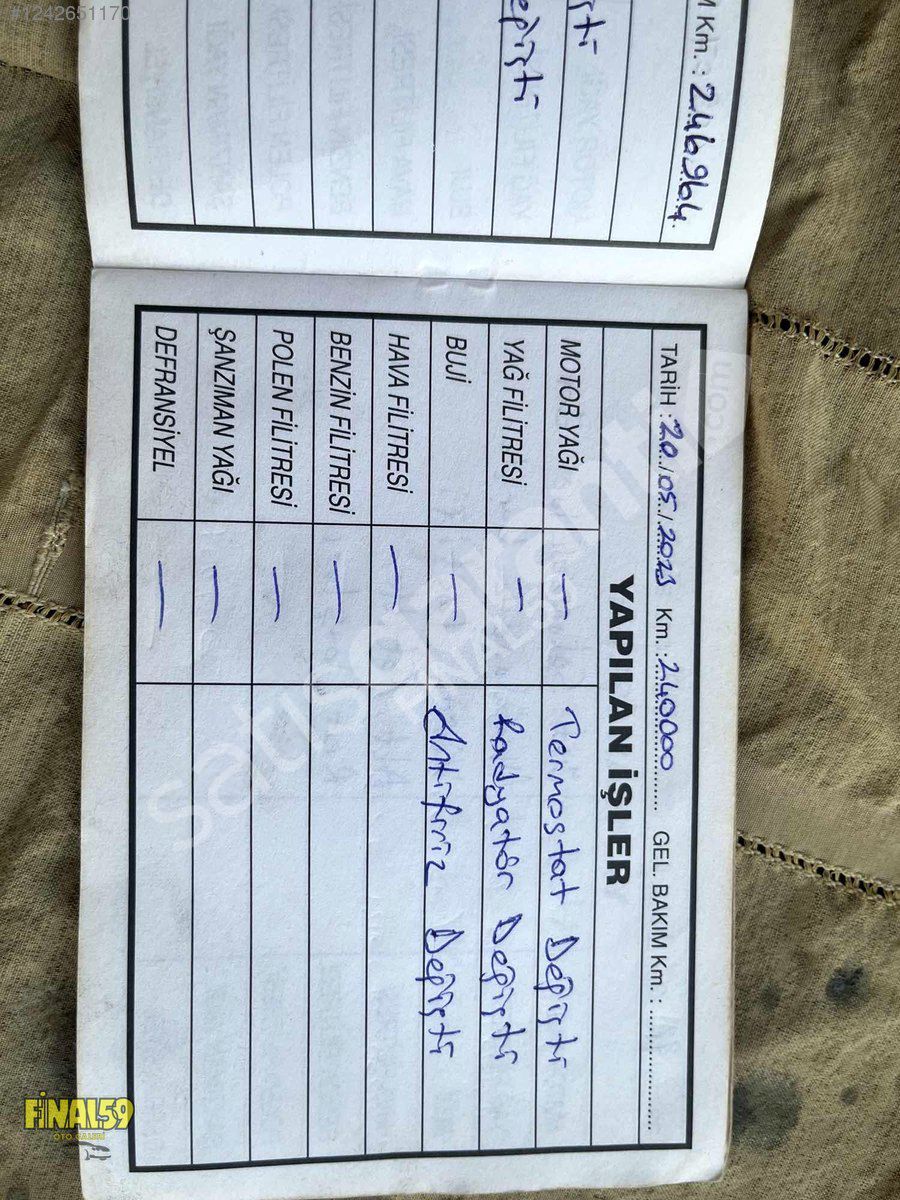 #1242651170
M Km. : 246.964.
ştı
epişti
TARİH : 20../05../2023 Km. : 240000 GEL. BAKIM Km. :
YAPILAN İŞLER
MOTOR YAĞI — Termostat Değişti
YAĞ FİLİTRESİ — Radyatör Değişti
BUJİ — Antifiriz Değişti
HAVA FİLİTRESİ —
BENZİN FİLİTRESİ —
POLEN FİLİTRESİ —
ŞANZIMAN YAĞI —
DEFRANSİYEL —
FİNAL59
OTO GALERİ